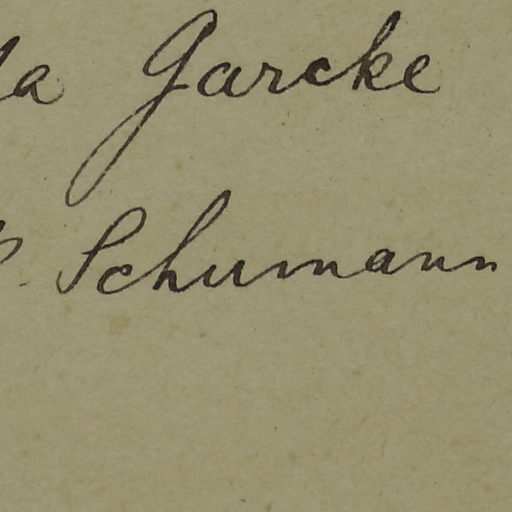 la Garcke
Schumann